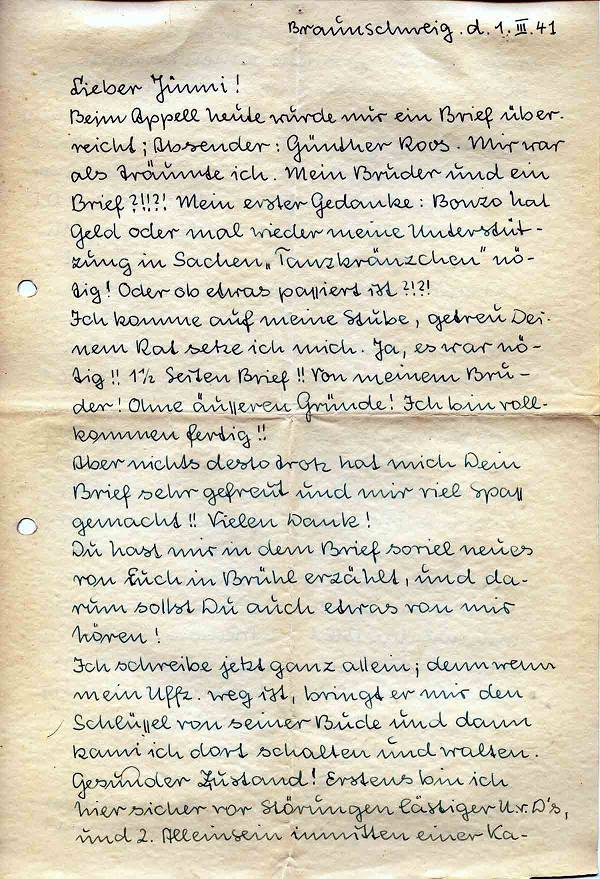 Braunschweig. d. 1. III. 41
Lieber Jimmi!
Beim Appell heute wurde mir ein Brief über-
reicht; Absender: Günther Roos. Mir war
als träumte ich. Mein Bruder und ein
Brief?!!?! Mein erster Gedanke: Bonzo hat
Geld oder mal wieder meine Unterstüt-
zung in Sachen „Tanzkränzchen" nö-
tig! Oder ob etwas passiert ist?!?!
Ich komme auf meine Stube, getreu Dei-
nem Rat setze ich mich. Ja, es war nö-
tig!! 1½ Seiten Brief!! Von meinem Bru-
der! Ohne äusseren Gründe! Ich bin voll-
kommen fertig!!
Aber nichts desto trotz hat mich Dein
Brief sehr gefreut und mir viel Spass
gemacht!! Vielen Dank!
Du hast mir in dem Brief soviel neues
von Euch in Brühl erzählt, und da-
rum sollst Du auch etwas von mir
hören!
Ich schreibe jetzt ganz allein; denn wenn
mein Uffz. weg ist, bringt er mir den
Schlüssel von seiner Bude und dann
kann ich dort schalten und walten.
Gesunder Zustand! Erstens bin ich
hier sicher vor Störungen lästiger U.v.D's,
und 2. Alleinsein inmitten einer Ka-